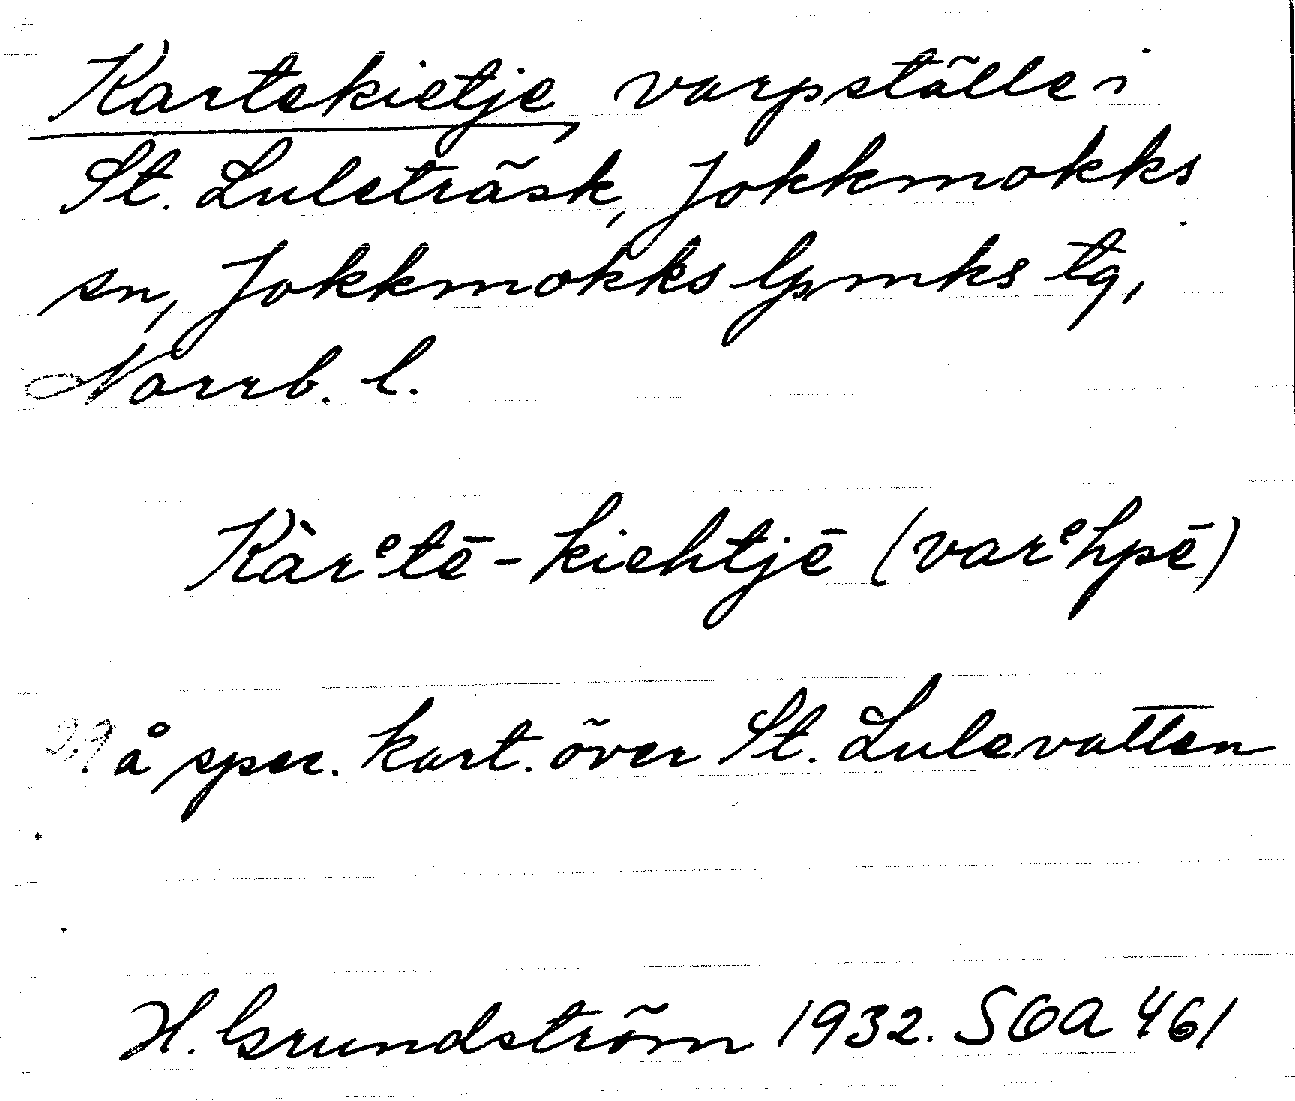 Kartekietje, varpställe i
St. Luleträsk, Jokkmokks
sn, Jokkmokks lpmks tg,
Norrb. l.
Kàrᵉtē-kiehtjē (varᵉhpē)
29 å spec. kart. över St. Lulevatten
H. Grundström 1932. SOA 461